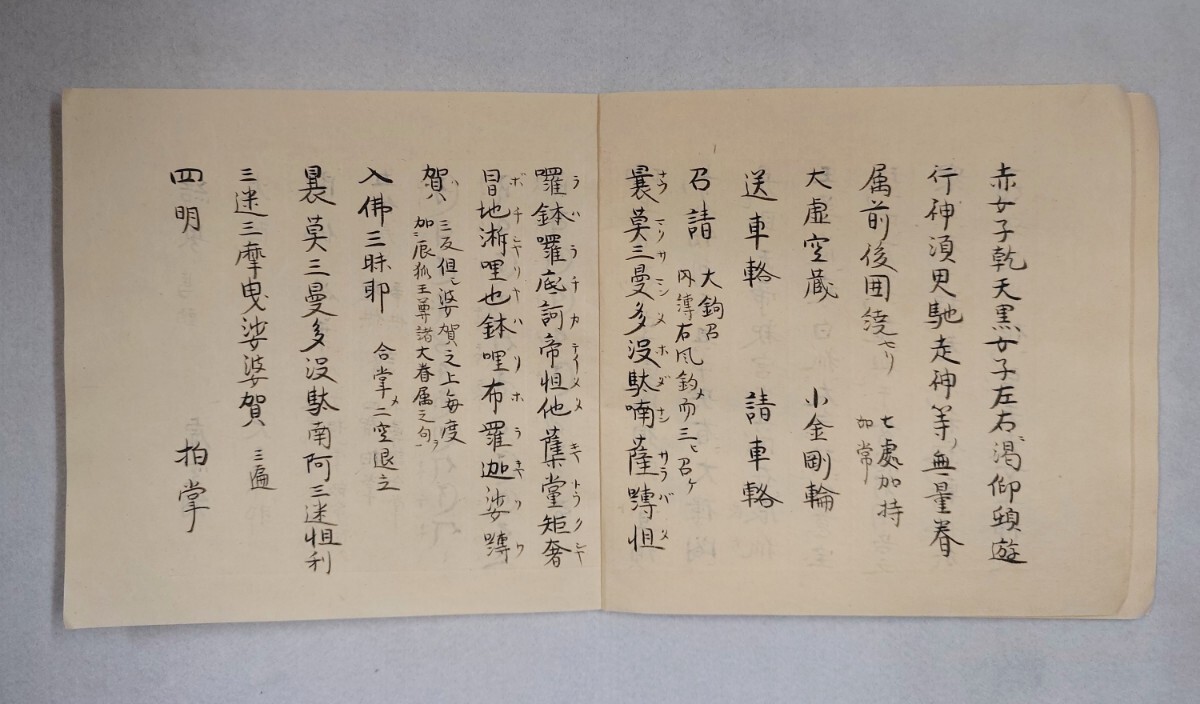 赤女子乾天黒女子左右渇仰頓遊
行神須臾馳走神等ノ無量眷
属前後囲繞セリ 七處加持 如常
大虚空蔵 小金剛輪
送車輅 請車輅
召請 大鉤召 内縛右風鈎メ而三ヒ召ケ
曩莫三曼多没駄喃薩嚩怛
囉鉢囉底訶帝怛他蘖黨矩奢
冒地浙哩也鉢哩布羅迦娑嚩
賀 三反但シ婆賀之上毎度 加ニ辰狐王尊諸大眷属之句ヲ
入佛三昧耶 合掌メ二空退立
曩莫三曼多没駄南阿三迷怛利
三迷三摩曳娑婆賀 三遍
四明 拍掌